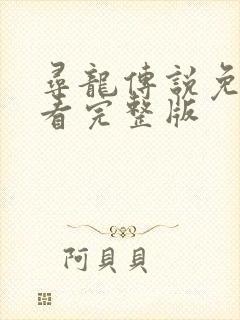 尋龍傳説免
看完整版
阿貝貝